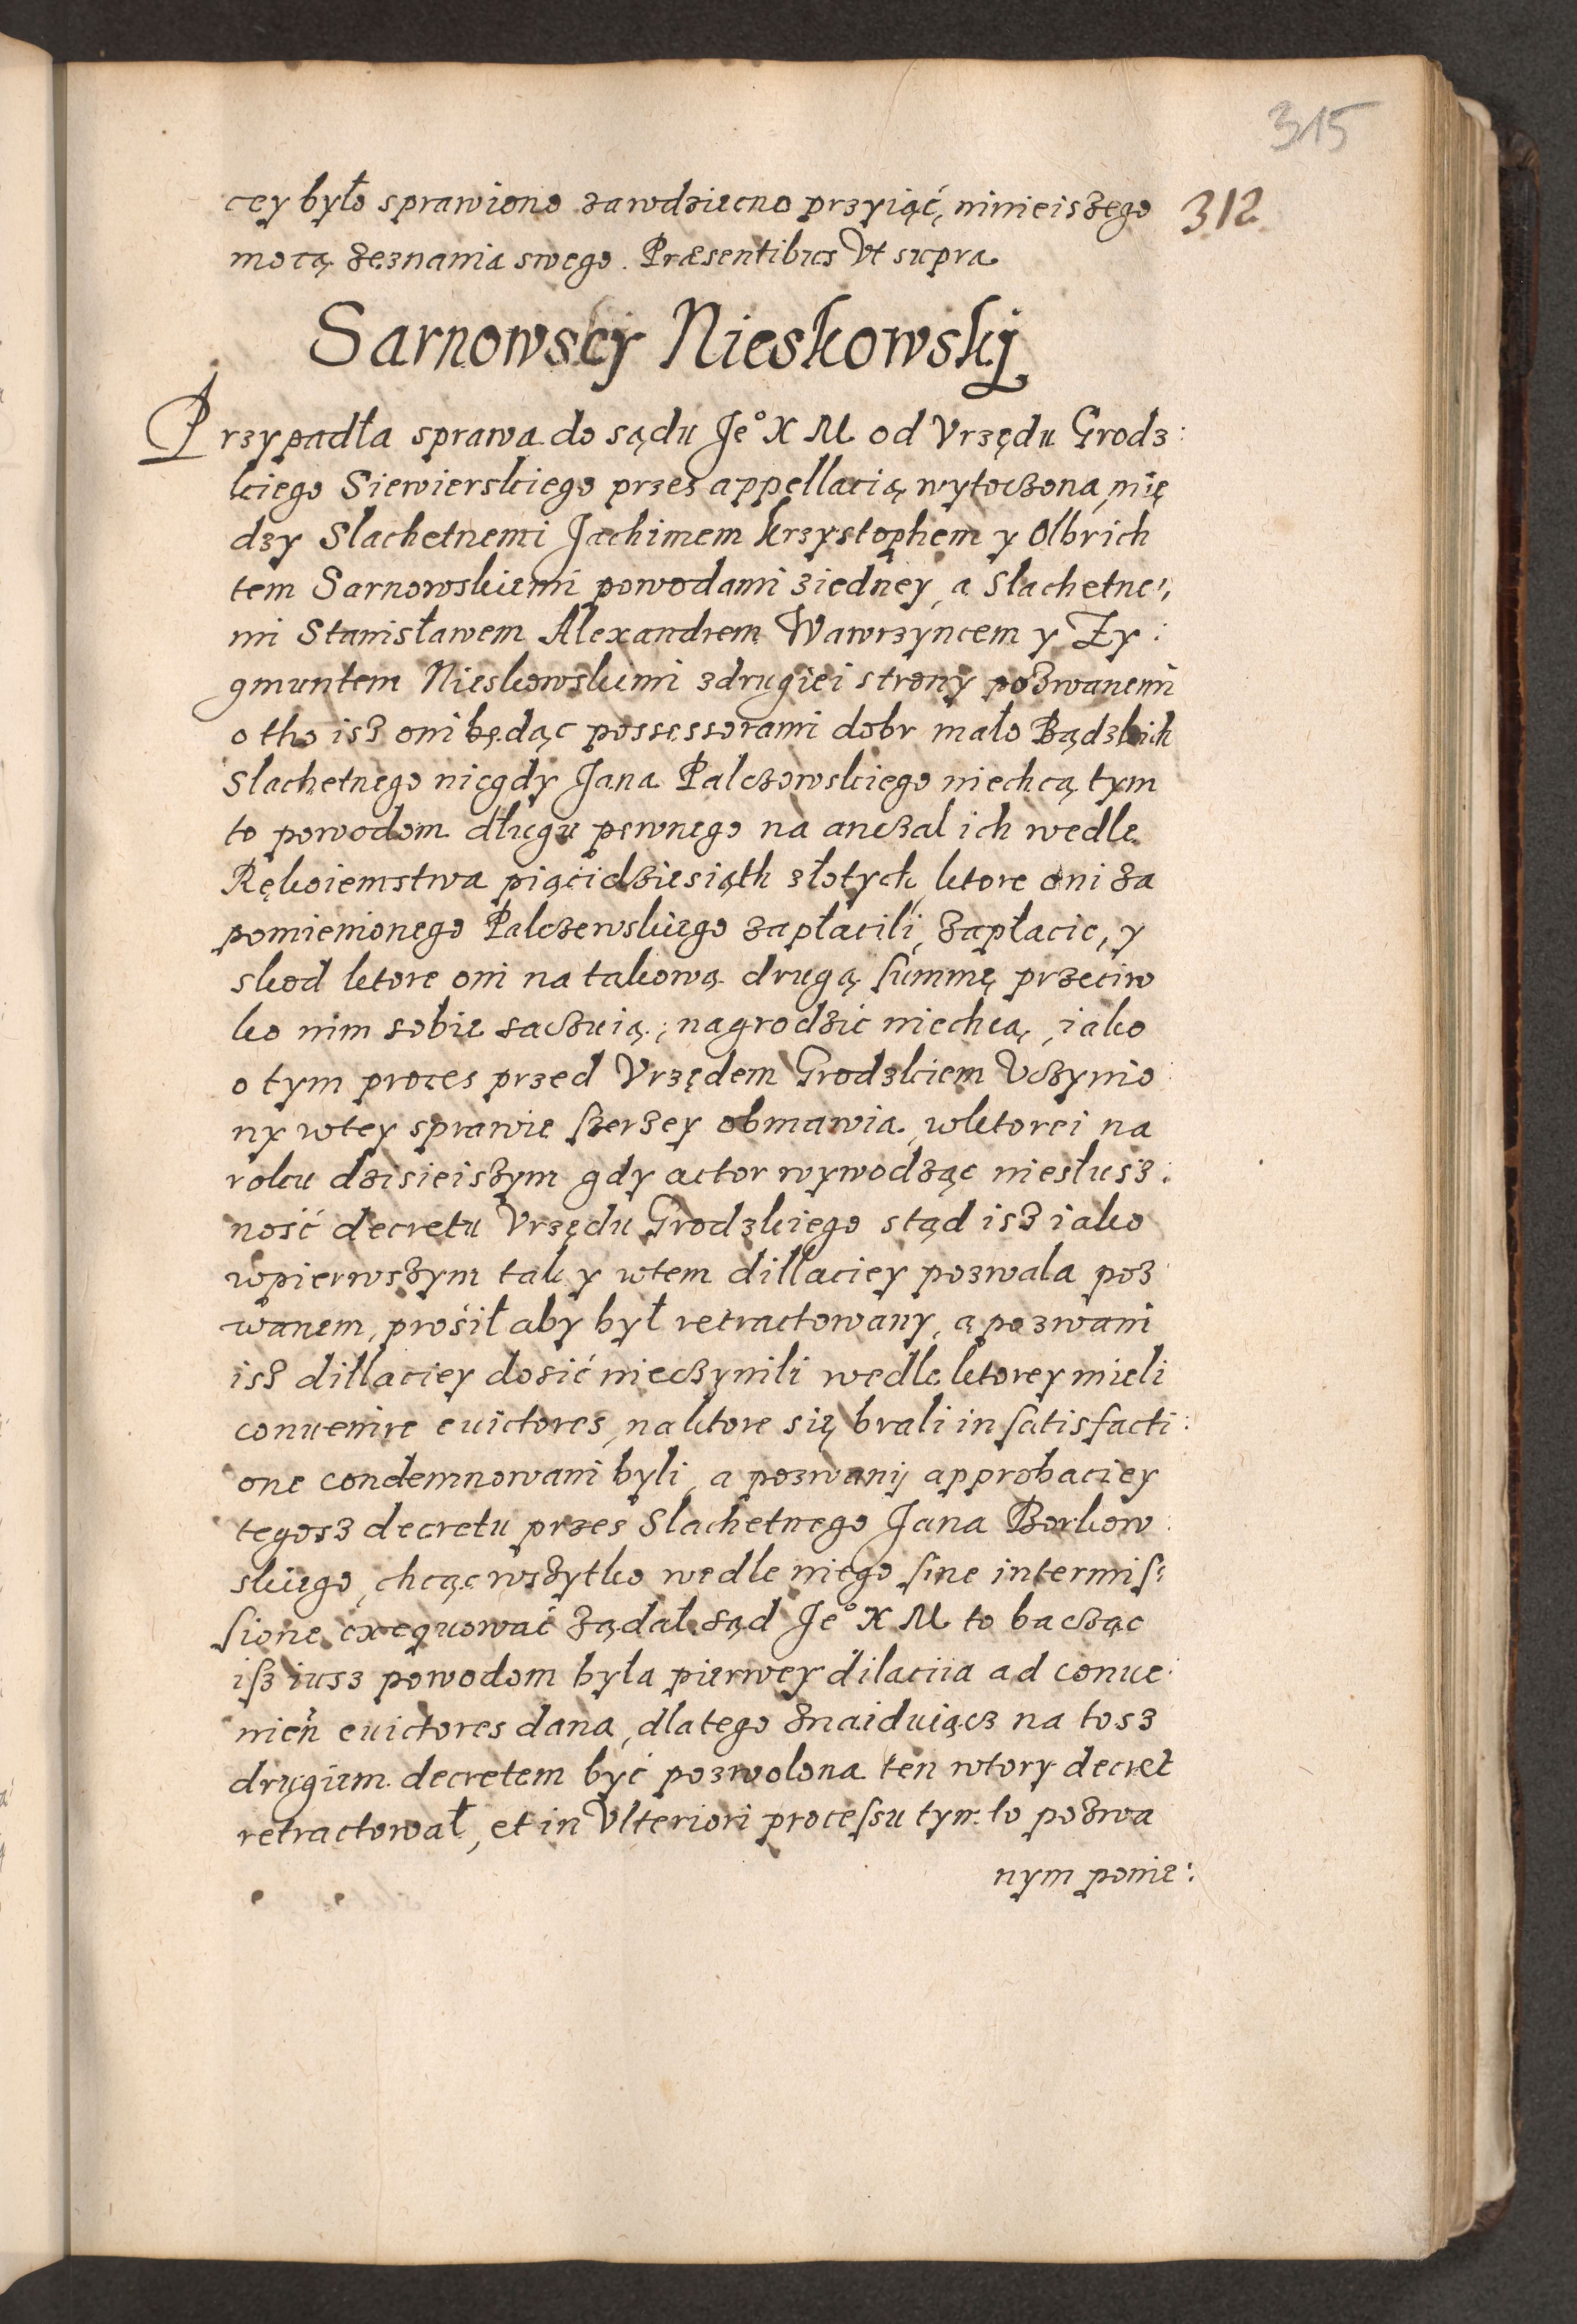 315
cey było sprawiono zawdziecno przyiąć, ninieiszego 312
mocą zeznania swego. Præsentibus Vt supra
Sarnowscy Nieskowskij
Przypadła sprawa do sądu Je° X M od Vrzędu Grodz:
kiego Siewierskiego przes appellacią wytoczona, mię
dzy Slachetnemi Jachimem Krzystophem y Olbrich
tem Sarnowskiemi powodami ziedney, a Slachetne:
mi Stanisławem Alexandrem Wawrzyncem y Zy:
gmuntem Nieskowskiemi zdrugiei strony pozwanemi
o tho isz oni będąc possessorami dobr mało Bądzkich
Slachetnego niegdy Jana Palczowskiego niechcą tym
to powodom długu pewnego na anczal ich wedle
Rękoiemstwa piącidziesiąth złotych, ktore oni za
pomienionego Palczewskiego zapłacili, zapłacic, y
skod ktore oni na takową drugą summę przeciw
ko nim sobie saczuią, nagrodzic niechcą, iako
o tym proces przed Vrzędem Grodzkiem Vczynio:
ny wtey sprawie szerzey obmawia, wktorei na
roku dzisieiszym gdy actor wywodząc niesłusz:
ność decretu Vrzędu Grodzkiego stąd isz iako
wpierwszym tak y wtem dillaciey pozwala poz
wanem, prosił aby był retractowany, a pozwani
isz dillaciey dosić nieczynili wedle ktorey mieli
conuenire euictores, naktore się brali in satisfacti:
one condemnowani byli, a pozwanij approbaciey
tegosz decretu przes Slachetnego Jana Borkow:
skiego, chcąc wszytko wedle niego sine intermis:
sione exequować żądał. Sąd Je° X M to bacząc
isz iusz powodom była pierwey dilaciia ad conue:
nień euictores dana, dlatego znaiduiącz na tosz
drugiem decretem być pozwolona ten wtory decret
retractował, et in Vlteriori processu tym to pozwa
nym ponie: